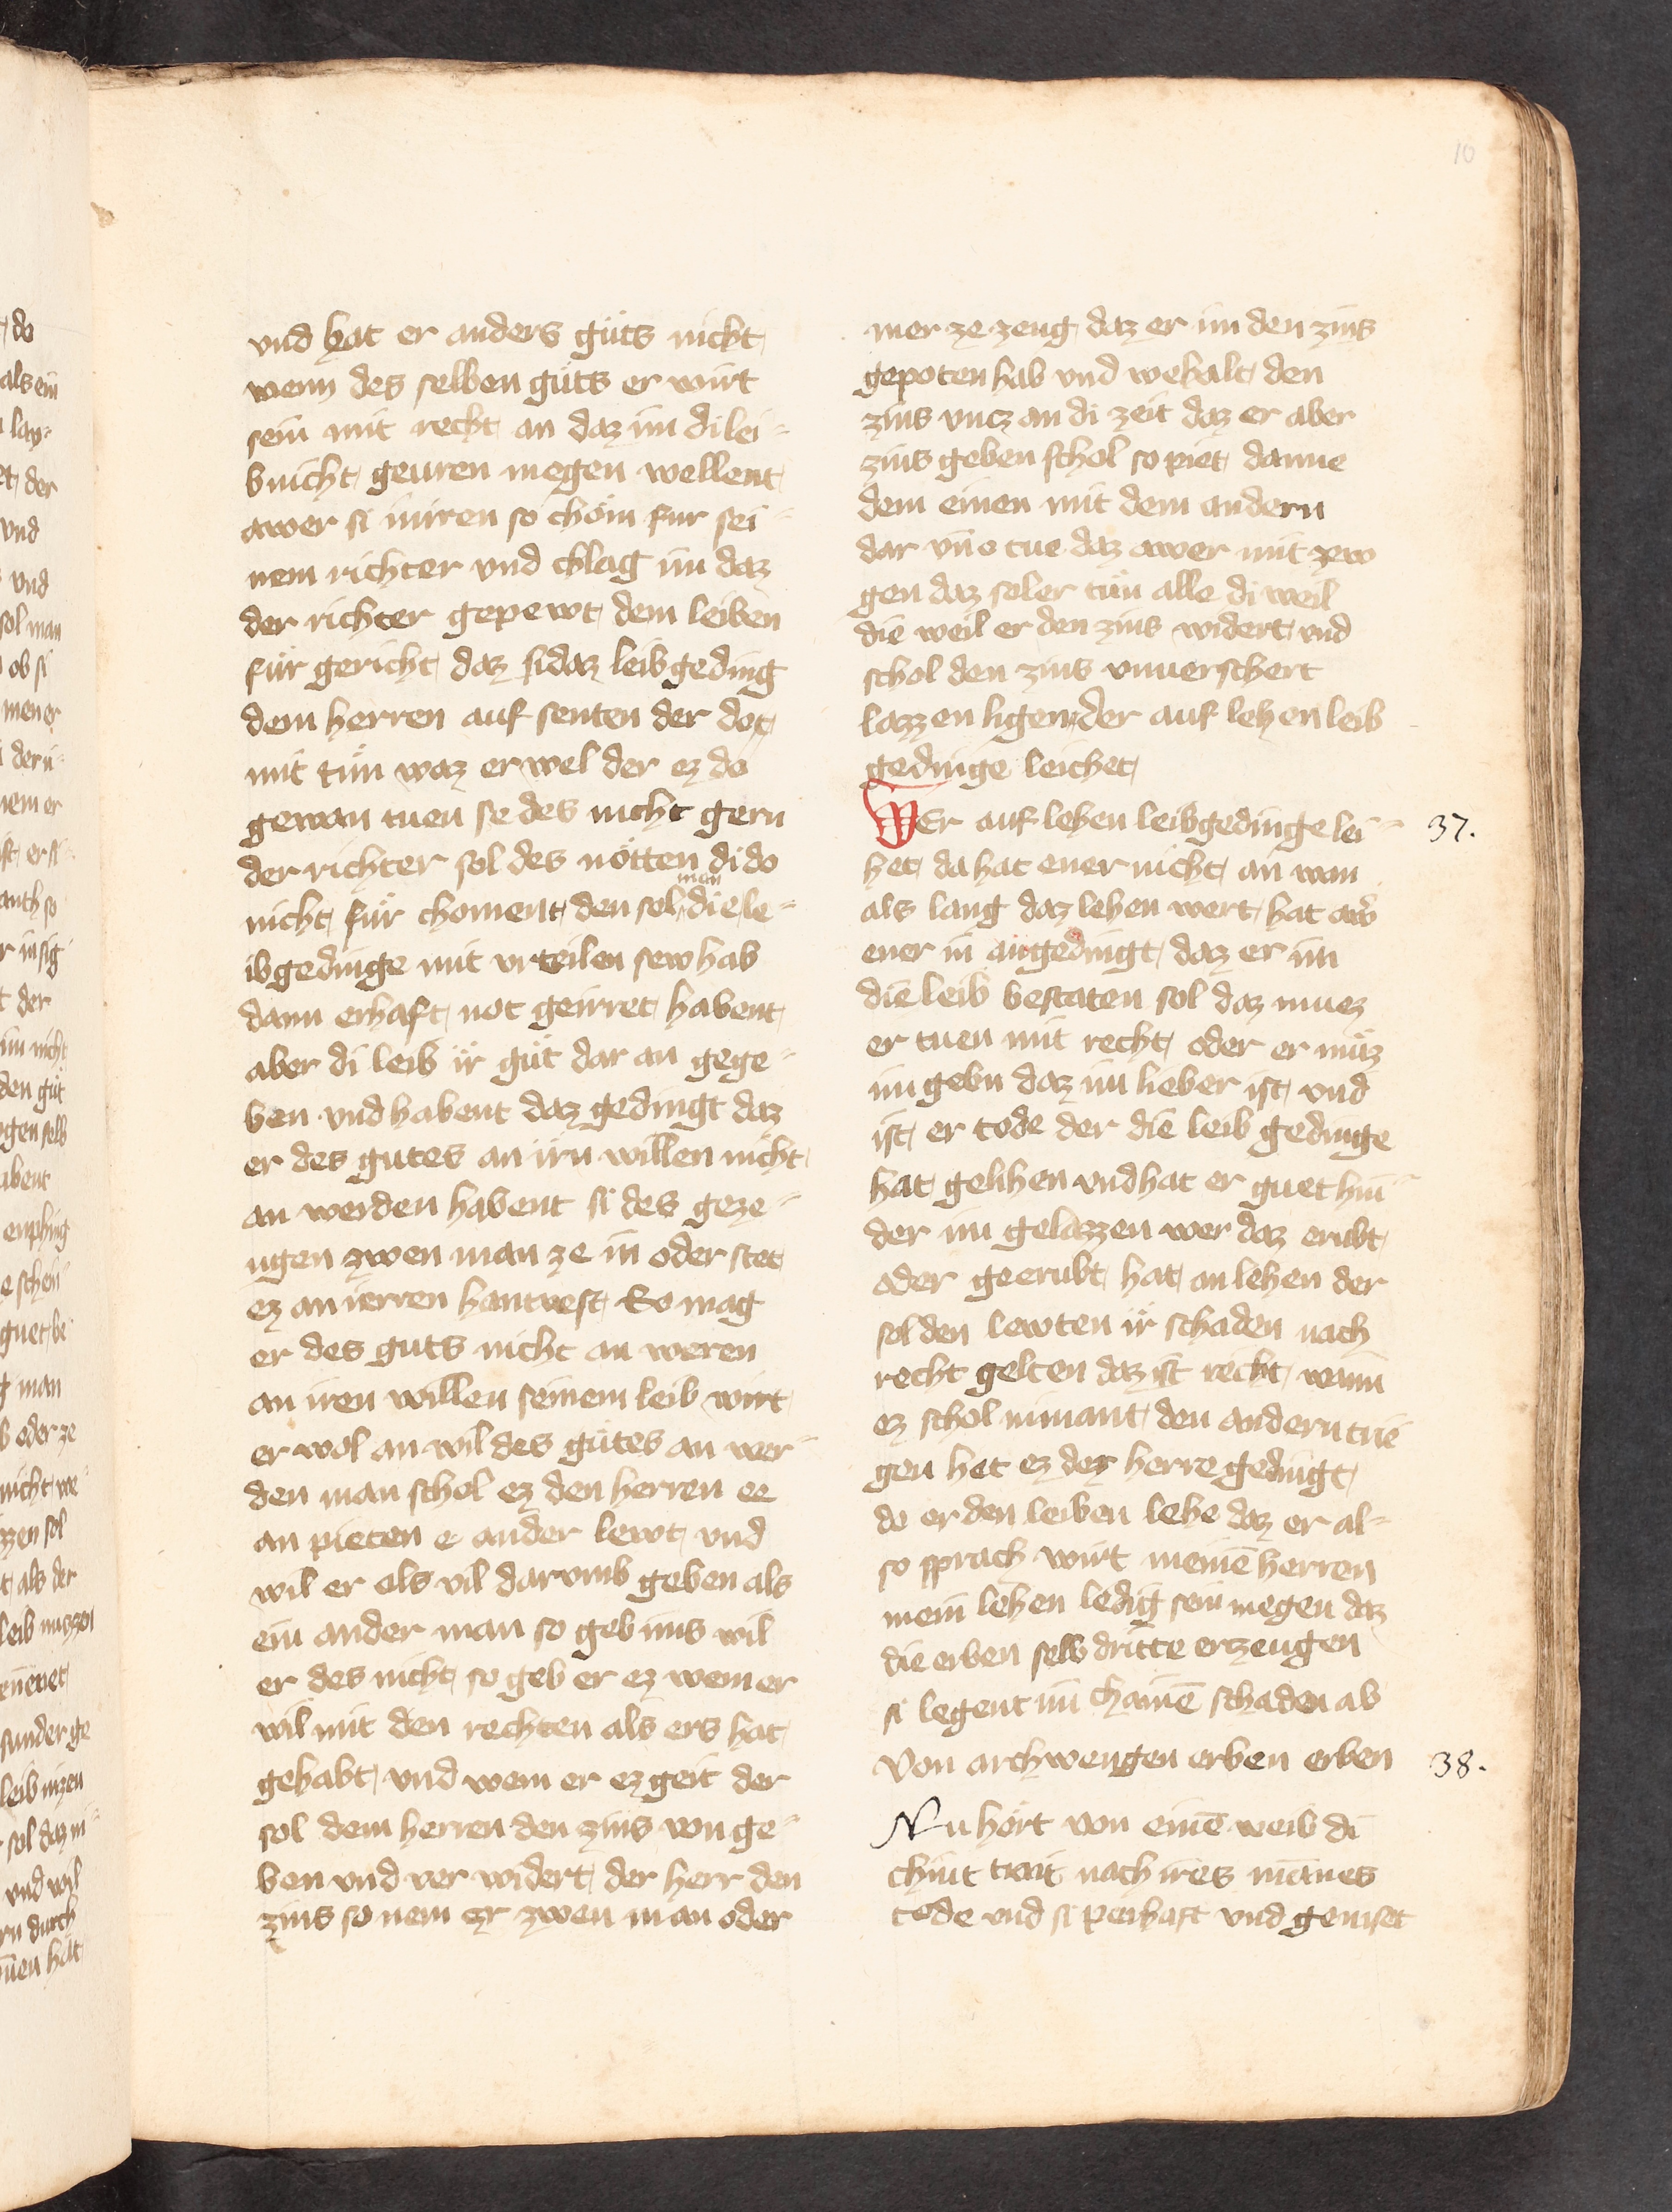 10
vnd hat er anders gůts nicht
wenn des selben gůts er wirt
sein mit recht an daz im di lei-
b nicht geuren megen wellent
awer si inrren so chöm fur sei-
nem richter vnd chlag im daz
der richter gepewt dem leiben
für gericht daz si daz leib geding
dem herren auf senten der do
mit tůn waz er wel der ez do
gewan tuen se des nicht gern
der richter sol des nötten di do
nicht für choment den sol man die le-
ibgedinge mit vrteilen sew hab
dann erhaft not geirret habent
aber di leib ir gůt dar an gege-
ben vnd habent daz gedingt daz
er des gutes an irn willen nicht
an werden habent si des geze-
ugen zwen man ze in oder stet
ez an ierren hantvest So mag
er des guts nicht an weren
an iren willen seinem leib wirt
er wol an wil des gůtes an wer-
den man schol ez den herren ee
an pieten e ander lewt vnd
wil er als vil darvmb geben als
ein ander man so geb ims wil
er des nicht so geb er ez wem er
wil mit den rechten als ers hat
gehabt vnd wem er ez geit der
sol dem herren den zins von ge-
ben vnd ver widert der herr den
zins so nem er zwen man oder
mer ze zeug daz er im den zins
gepoten hab vnd wehalt den
zins vncz an di zeit daz er aber
zins geben schol so piet danne
dem einen mit dem andern
dar vnd tue daz awer mit zew
gen daz sol er tůn alle di weil
die weil er den zins widert vnd
schol den zins vnuerschert
lazzen ligen der auf lehen leib
gedinge leichet
WEr auf lehen leibgedinge lei- 37.
het da hat ener nicht an wan
als lang daz lehen wert hat aw̄
ener in angedingt daz er im
die leib bestaten sol daz muez
er tuen mit recht oder er můz
im gebn daz im lieber ist vnd
ist er tode der die leib gedinge
hat gelihen vnd hat er guet hin-
der im gelazzen wer daz erubt
oder geerubt hat an lehen der
sol den lewten ir schaden nach
recht gelten daz ist recht wann
ez schol nimant den andern trie
gen het ez der herre gedingt
do er den leiben lehe daz er al-
so sprach wirt meinē herren
mein lehen ledig sein megen daz
die erben selb dritte erzeugen
si legent im chainē schaden ab
Von archwengen erben erben 38.
Nu hört von einē weib di
chint trait nach ires mānes
tode vnd si perhaft vnd geniset